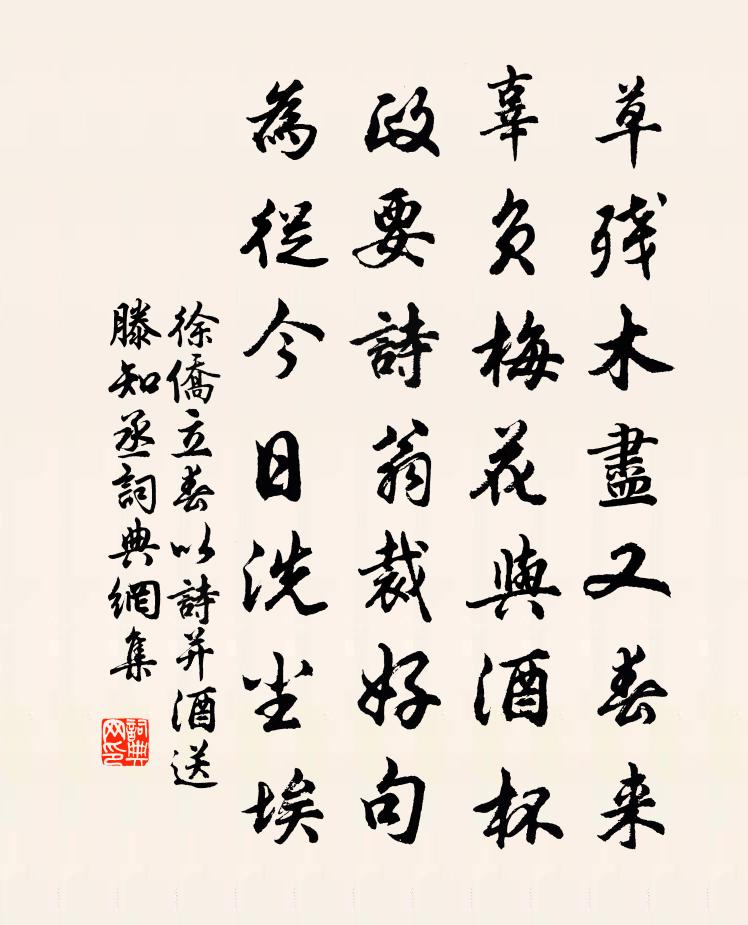 草残木盡又春来
辜负梅花與酒杯
政要詩翁裁好句
為從今日洗尘埃
徐僑立春以詩并酒送
滕知丞詞典網集
詞典網印